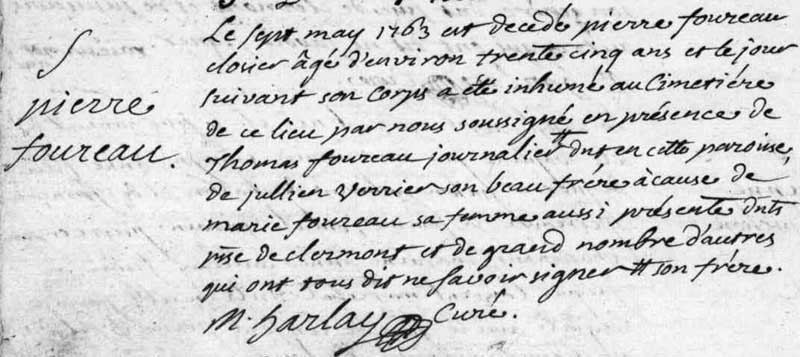 S
pierre
foureau.
Le sept may 1763 est decedé pierre foureau
closier âgé d'environ trente cinq ans et le jour
suivant son corps a été inhumé au Cimetiére
de ce lieu par nous soussigné en présence de
Thomas foureau journalier # dnt en cette paroisse,
de jullien verrier son beau frére à cause de
marie foureau sa femme aussi présente dnts
psse de clermont et de grand nombre d'autres
qui ont tous dit ne savoir signer # son frére.
M. harlay Curé.